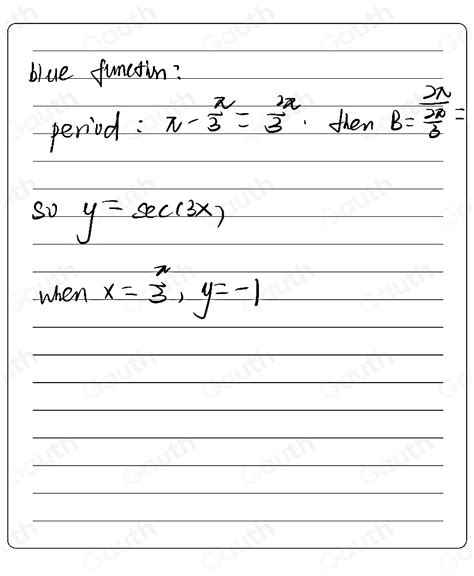 blue function:
period : π - π/3 = 2π/3 . then B = 2π/(2π/3) =
so y = sec(3x)
when x = π/3, y = -1